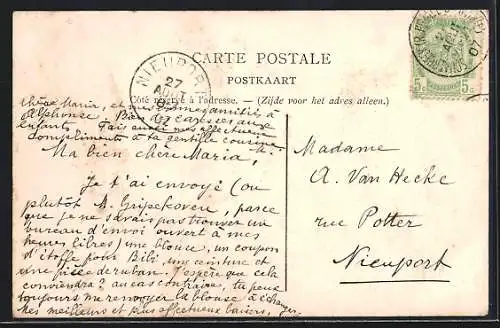 CARTE POSTALE
POSTKAART
Côté réservé à l'adresse. — (Zijde voor het adres alleen.)
NIEUPORT
27
AOUT
07
5c 5c
chère Maria, et mes
Alphonse. Bien des caresses aux
enfants. Fais aussi mes affectueux
compliments à ta gentille cousine.
Ma bien chère Maria,
Je t'ai envoyé (ou
plutôt M. Grijpekoven, parce
que je ne savais pas trouver un
bureau d'envoi ouvert à mes
heures libres) une blouse, un coupon
d'étoffe pour Bibi, une ceinture et
une pièce de ruban. J'espère que cela
conviendra? au cas contraire, tu peux
toujours me renvoyer la blouse à échanger.
Mes meilleurs et plus affectueux baisers,
Madame
A. Van Hecke
rue Potter
Nieuport